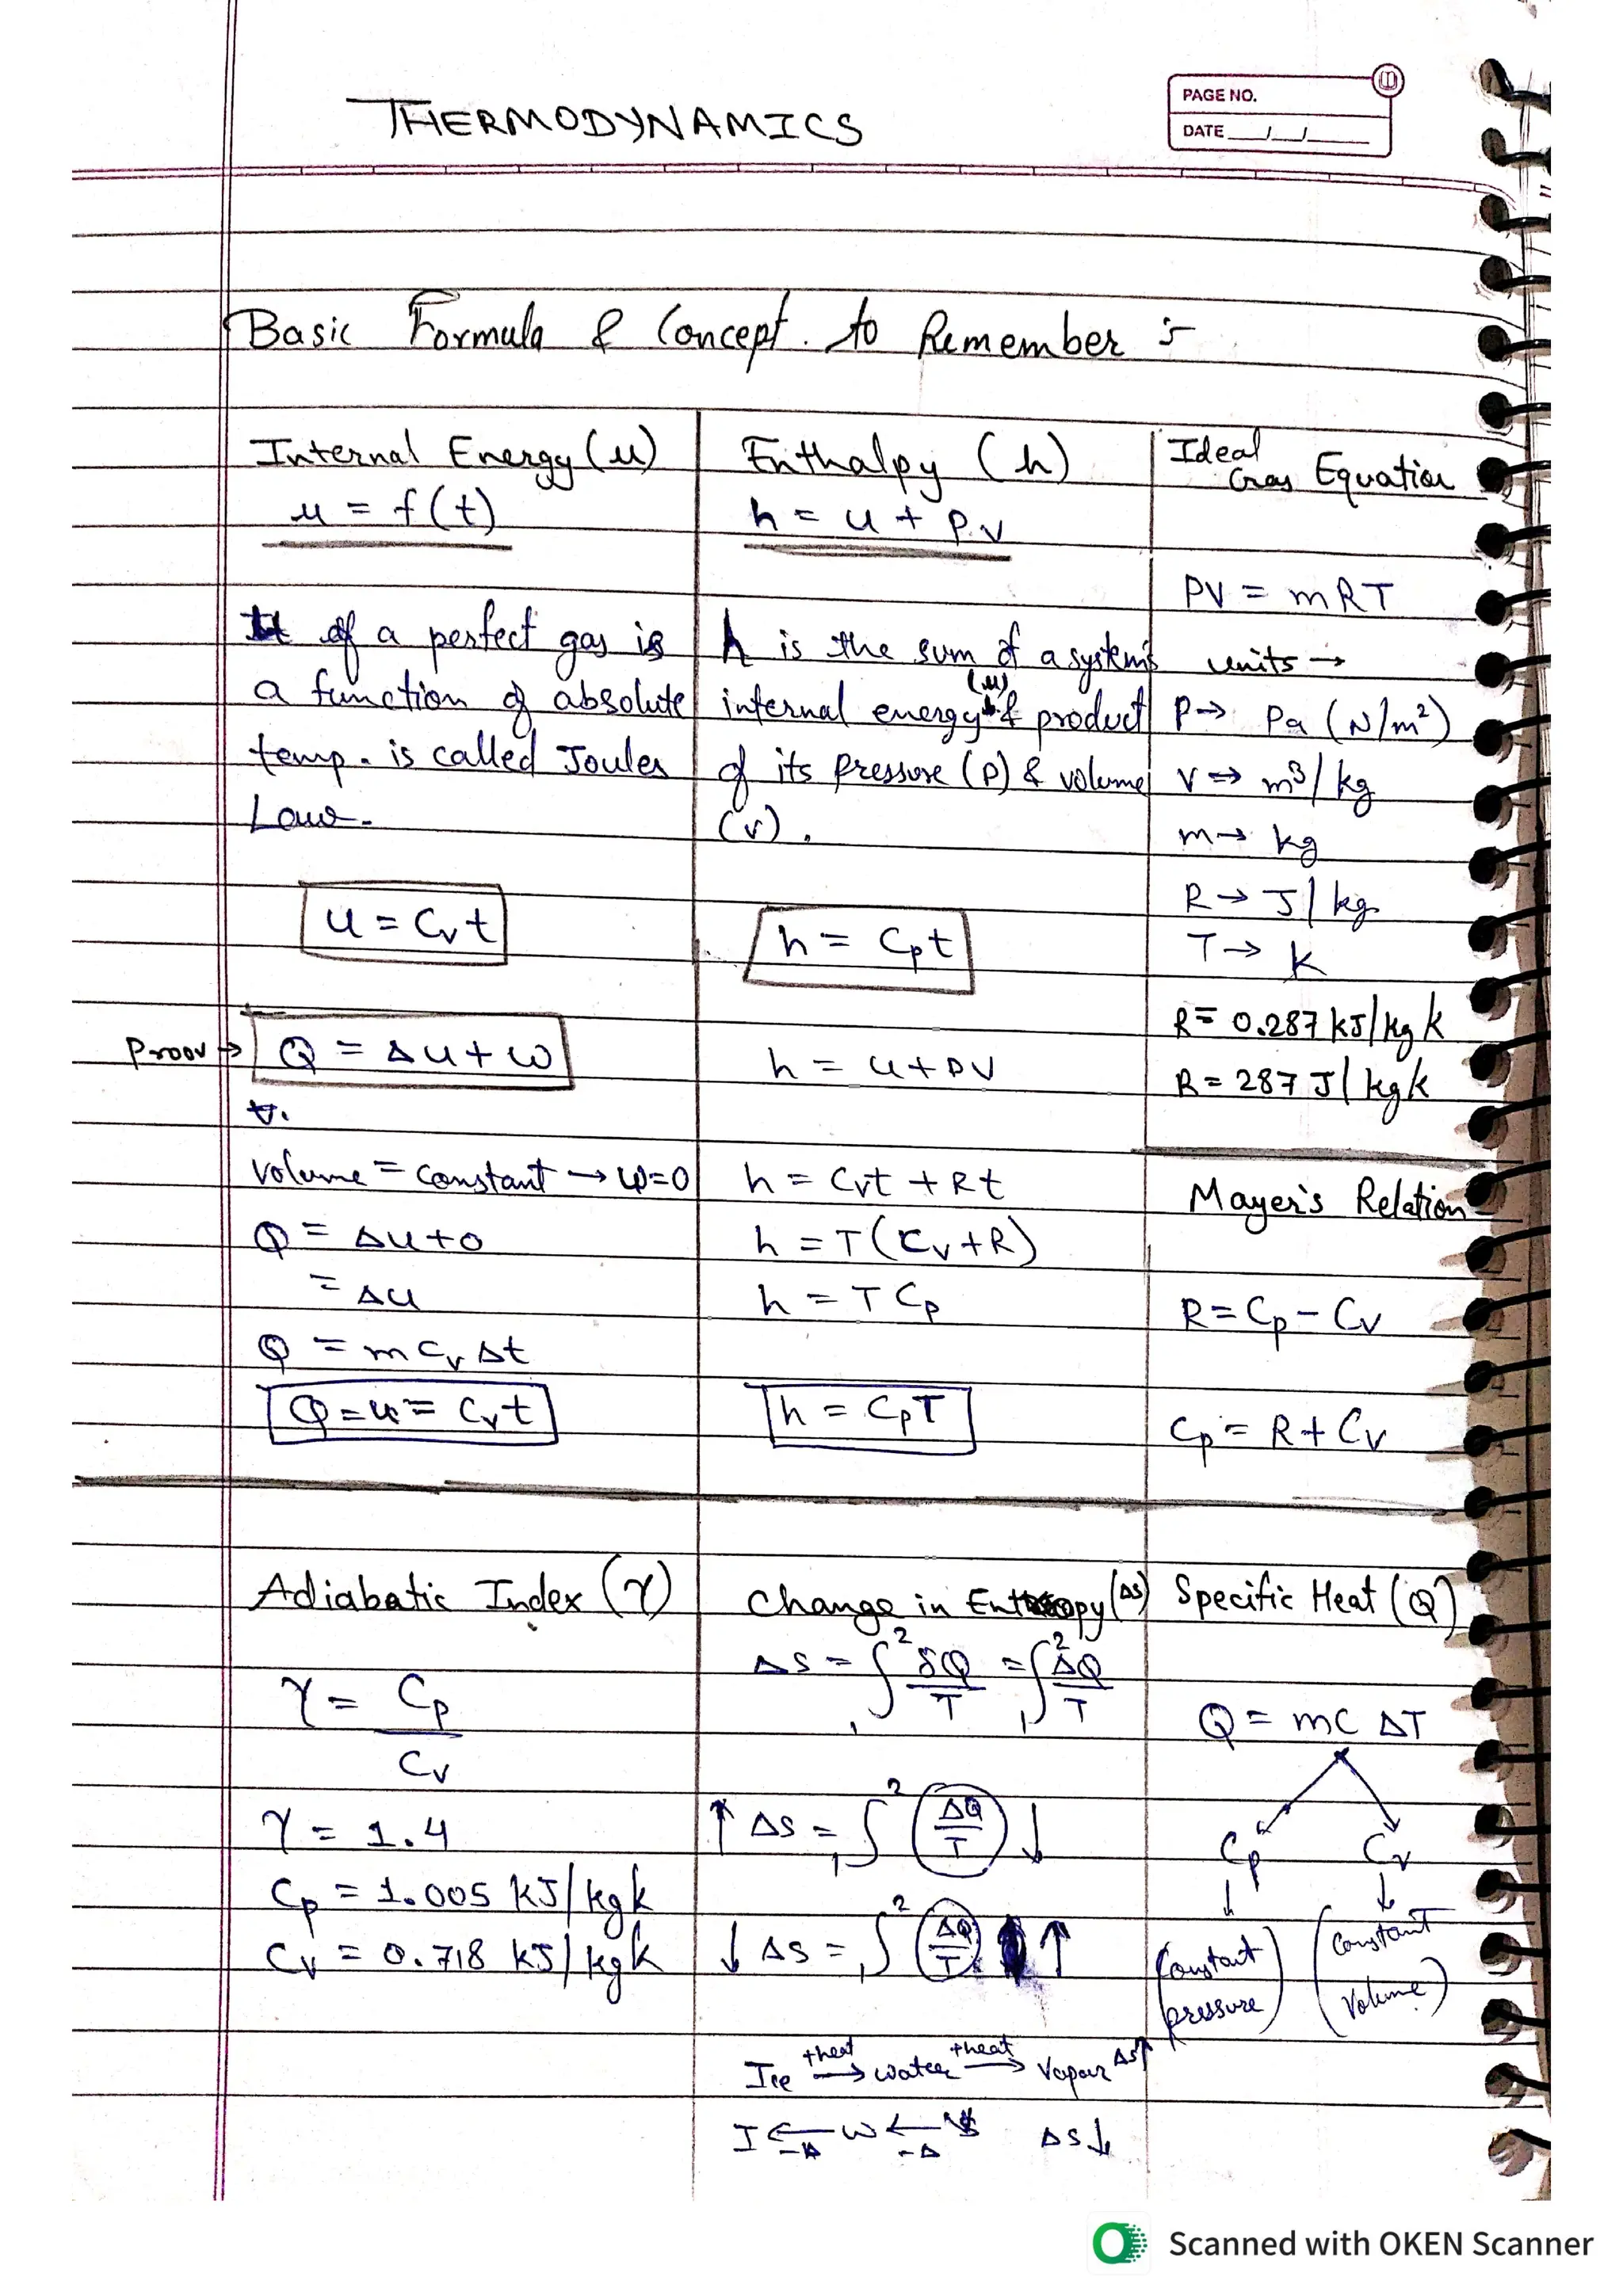 THERMODYNAMICS
PAGE NO.
DATE __/__/____
Basic Formula & Concept. to Remember :-
Internal Energy (u)
u = f(t)
u of a perfect gas is
a function of absolute
temp. is called Joules
Law.
u = Cvt
Proov → Q = Δu + w
volume = constant → w=0
Q = Δu+0
= Δu
Q = m Cv Δt
Q = u = Cvt
Enthalpy (h)
h = u + p.v
h is the sum of a system's
internal energy (u) & product
of its pressure (p) & volume
(v).
h = Cpt
h = u+pv
h = Cvt + Rt
h = T(Cv+R)
h = T Cp
h = CpT
Ideal Gas Equation
PV = mRT
units →
P → Pa (N/m²)
V → m³/kg
m → kg
R → J/kg
T → K
R = 0.287 kJ/kg k
R = 287 J/kgk
Mayer's Relation
R = Cp - Cv
Cp = R + Cv
Adiabatic Index (γ)
γ = Cp/Cv
γ = 1.4
Cp = 1.005 kJ/kgk
Cv = 0.718 kJ/kgk
Change in Entropy (ΔS)
ΔS = ₁∫² δQ/T = ₁∫² ΔQ/T
↑ ΔS = ₁∫² (ΔQ/T) ↓
↓ ΔS = ₁∫² (ΔQ/T) ↑
Ice +heat→ water +heat→ Vapour ΔS↑
I ←-Δ W ←-Δ ΔS↓
Specific Heat (Q)
Q = mc ΔT
Cp Cv
(Constant pressure) (Constant Volume)
Scanned with OKEN Scanner